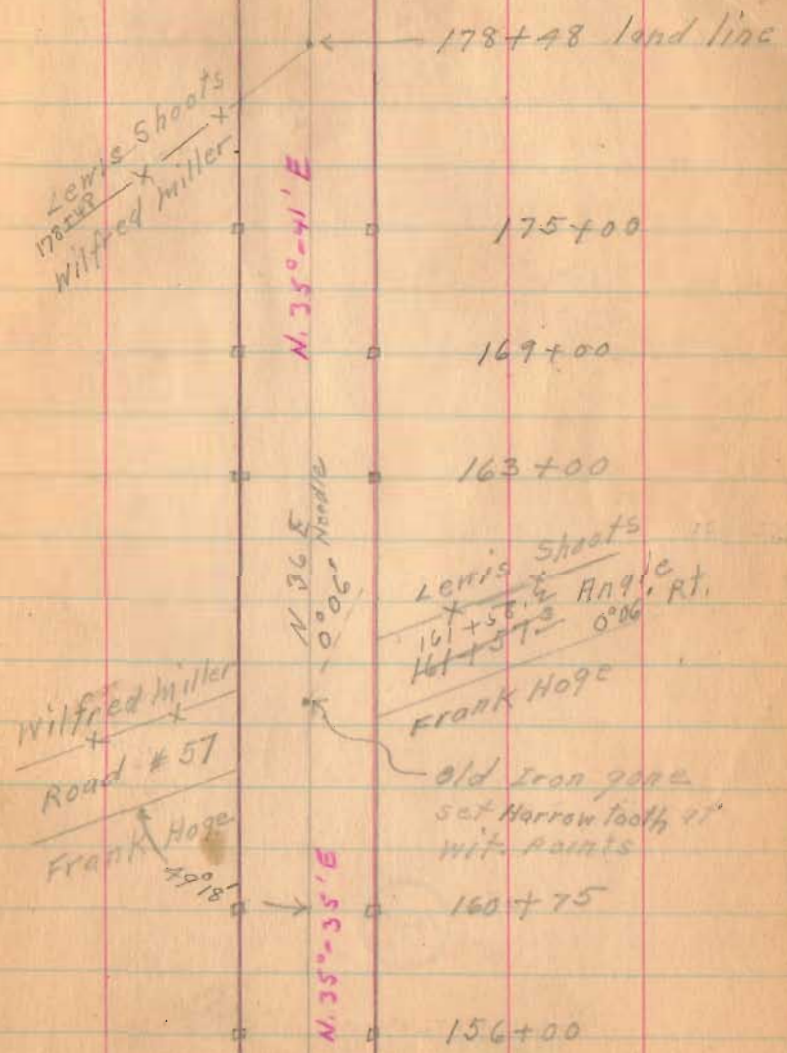 178+48 land line
Lewis Shoots
178+48
Wilfred Miller
N. 35°-41' E
175+00
169+00
163+00
N 36 E
0°06' Needle
Lewis Shoots
161+58.
Angle
0°06' Rt.
161+57.3
Frank Hoge
Wilfred Miller
Road #57
Frank Hoge
79°18'
Old Iron gone
set Harrow tooth at
wit. Points
160+75
N. 35°-35' E
156+00